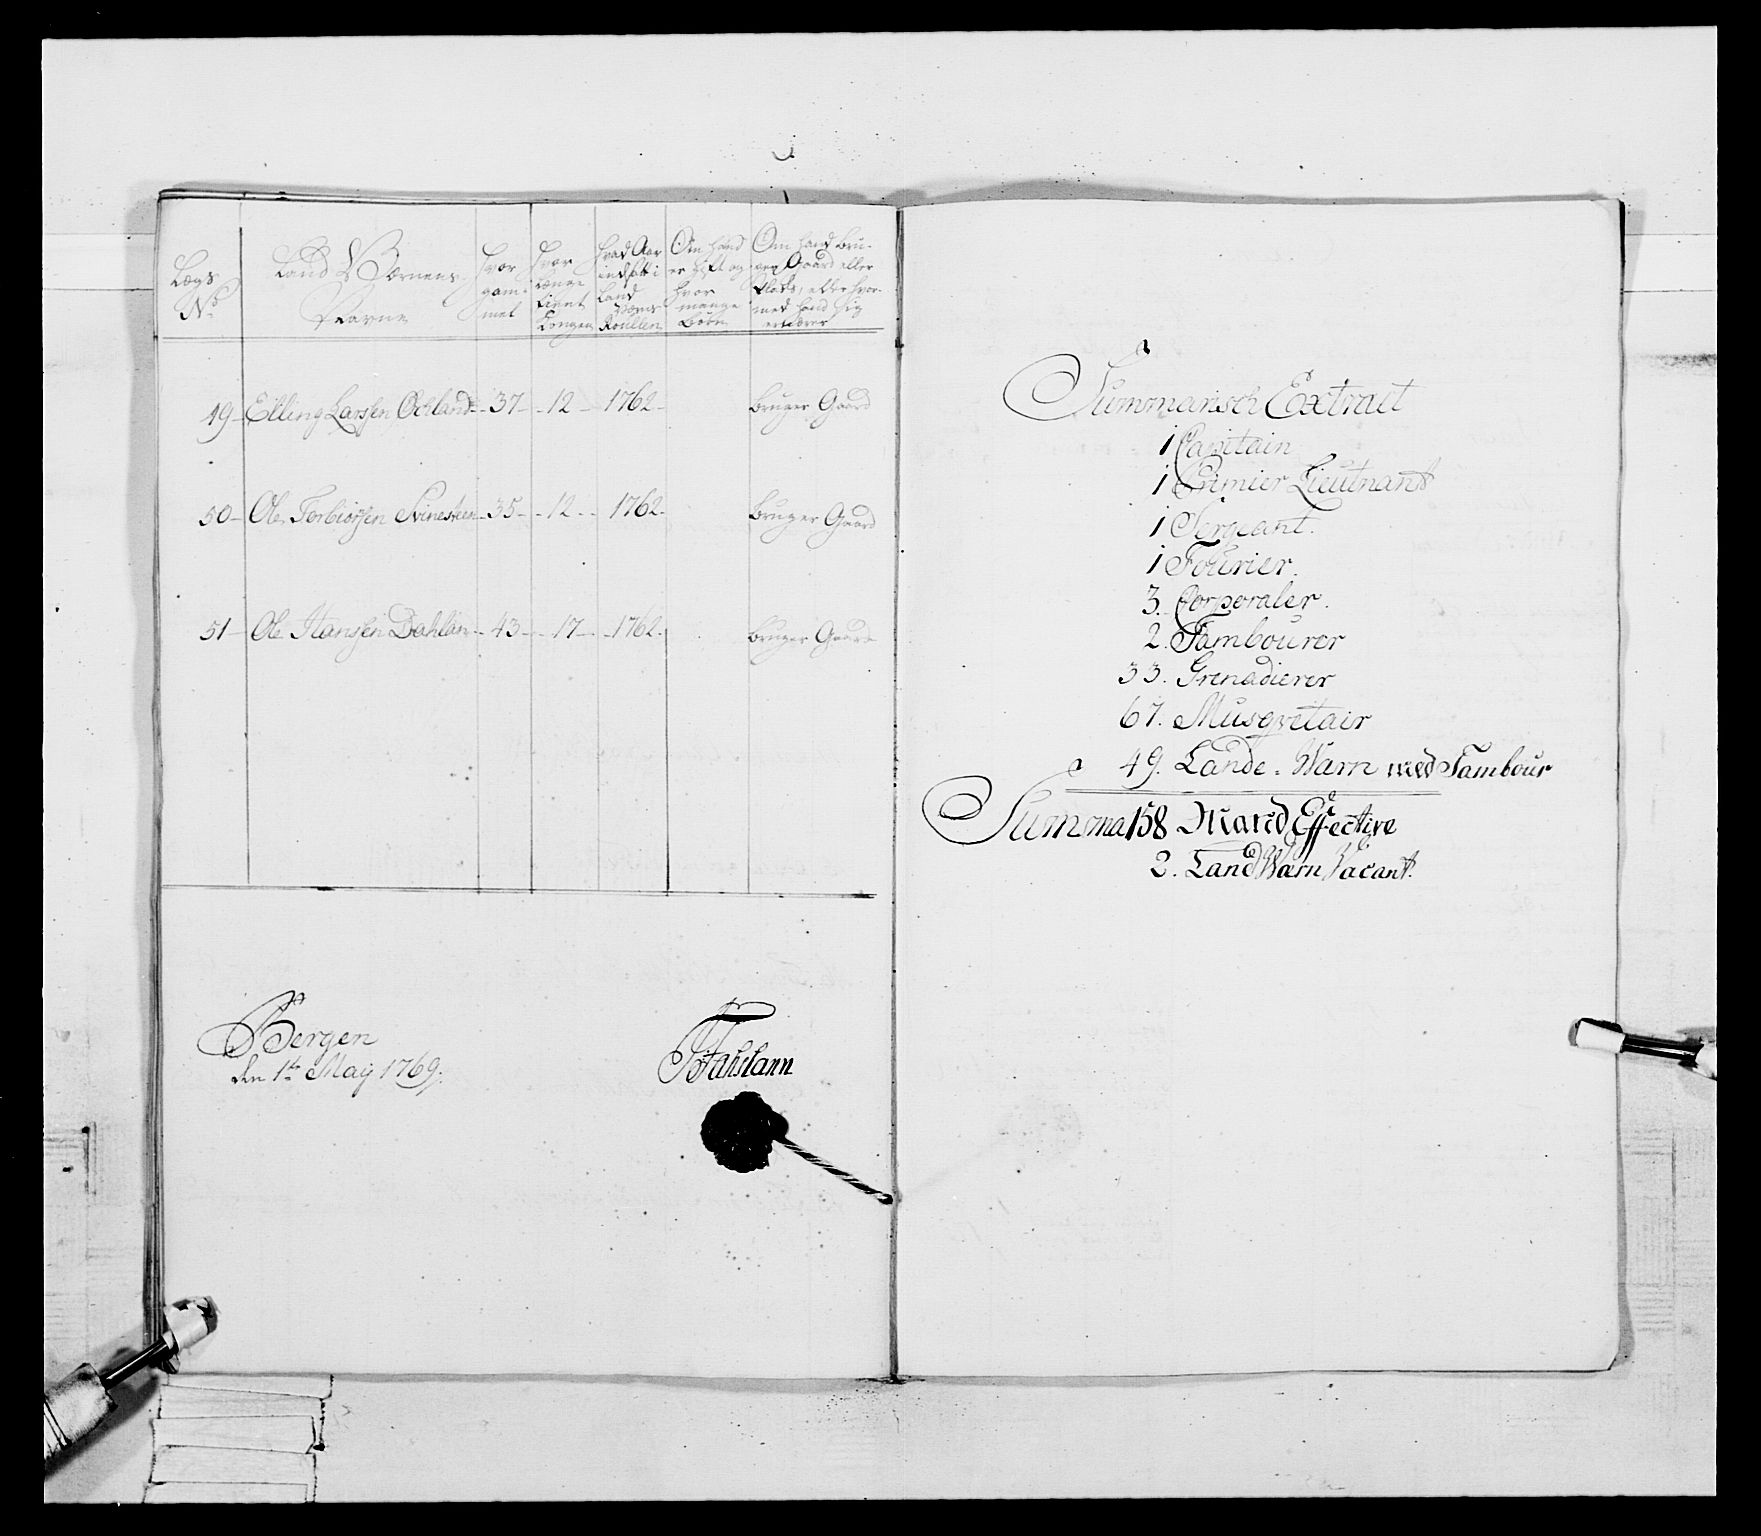 Lægs
No
Land Værnens
Navne
Hvor
gam-
mel
Hvor
længe
tient
Kongen
Hvad Aar
indsatt i
Land
Værns
Roullen
Om hand
er gift og
hvor
mange
Børn
Om hand bru-
ger Gaard eller
Plads, eller hvor-
med hand sig
ernærer
49 Elling Larssen 37 12 1762 bruger Gaard
50 Ole Torbiørsen Svinesteen 35 12 1762 bruger Gaard
51 Ole Hanssen 43 17 1762 bruger Gaard
Bergen
den 1te Maij 1769.
Summarisch Extract
1 Capitain
1 Primier Lieutnant
1 Sergeant.
1 Fourier.
3. Corporaler.
2. Tambourer
33. Grenadierer
67. Musqvetair
49. Lande-Wærn med Tambour
Summa 158 Mand Effective
2. Land Wærn Vacant.